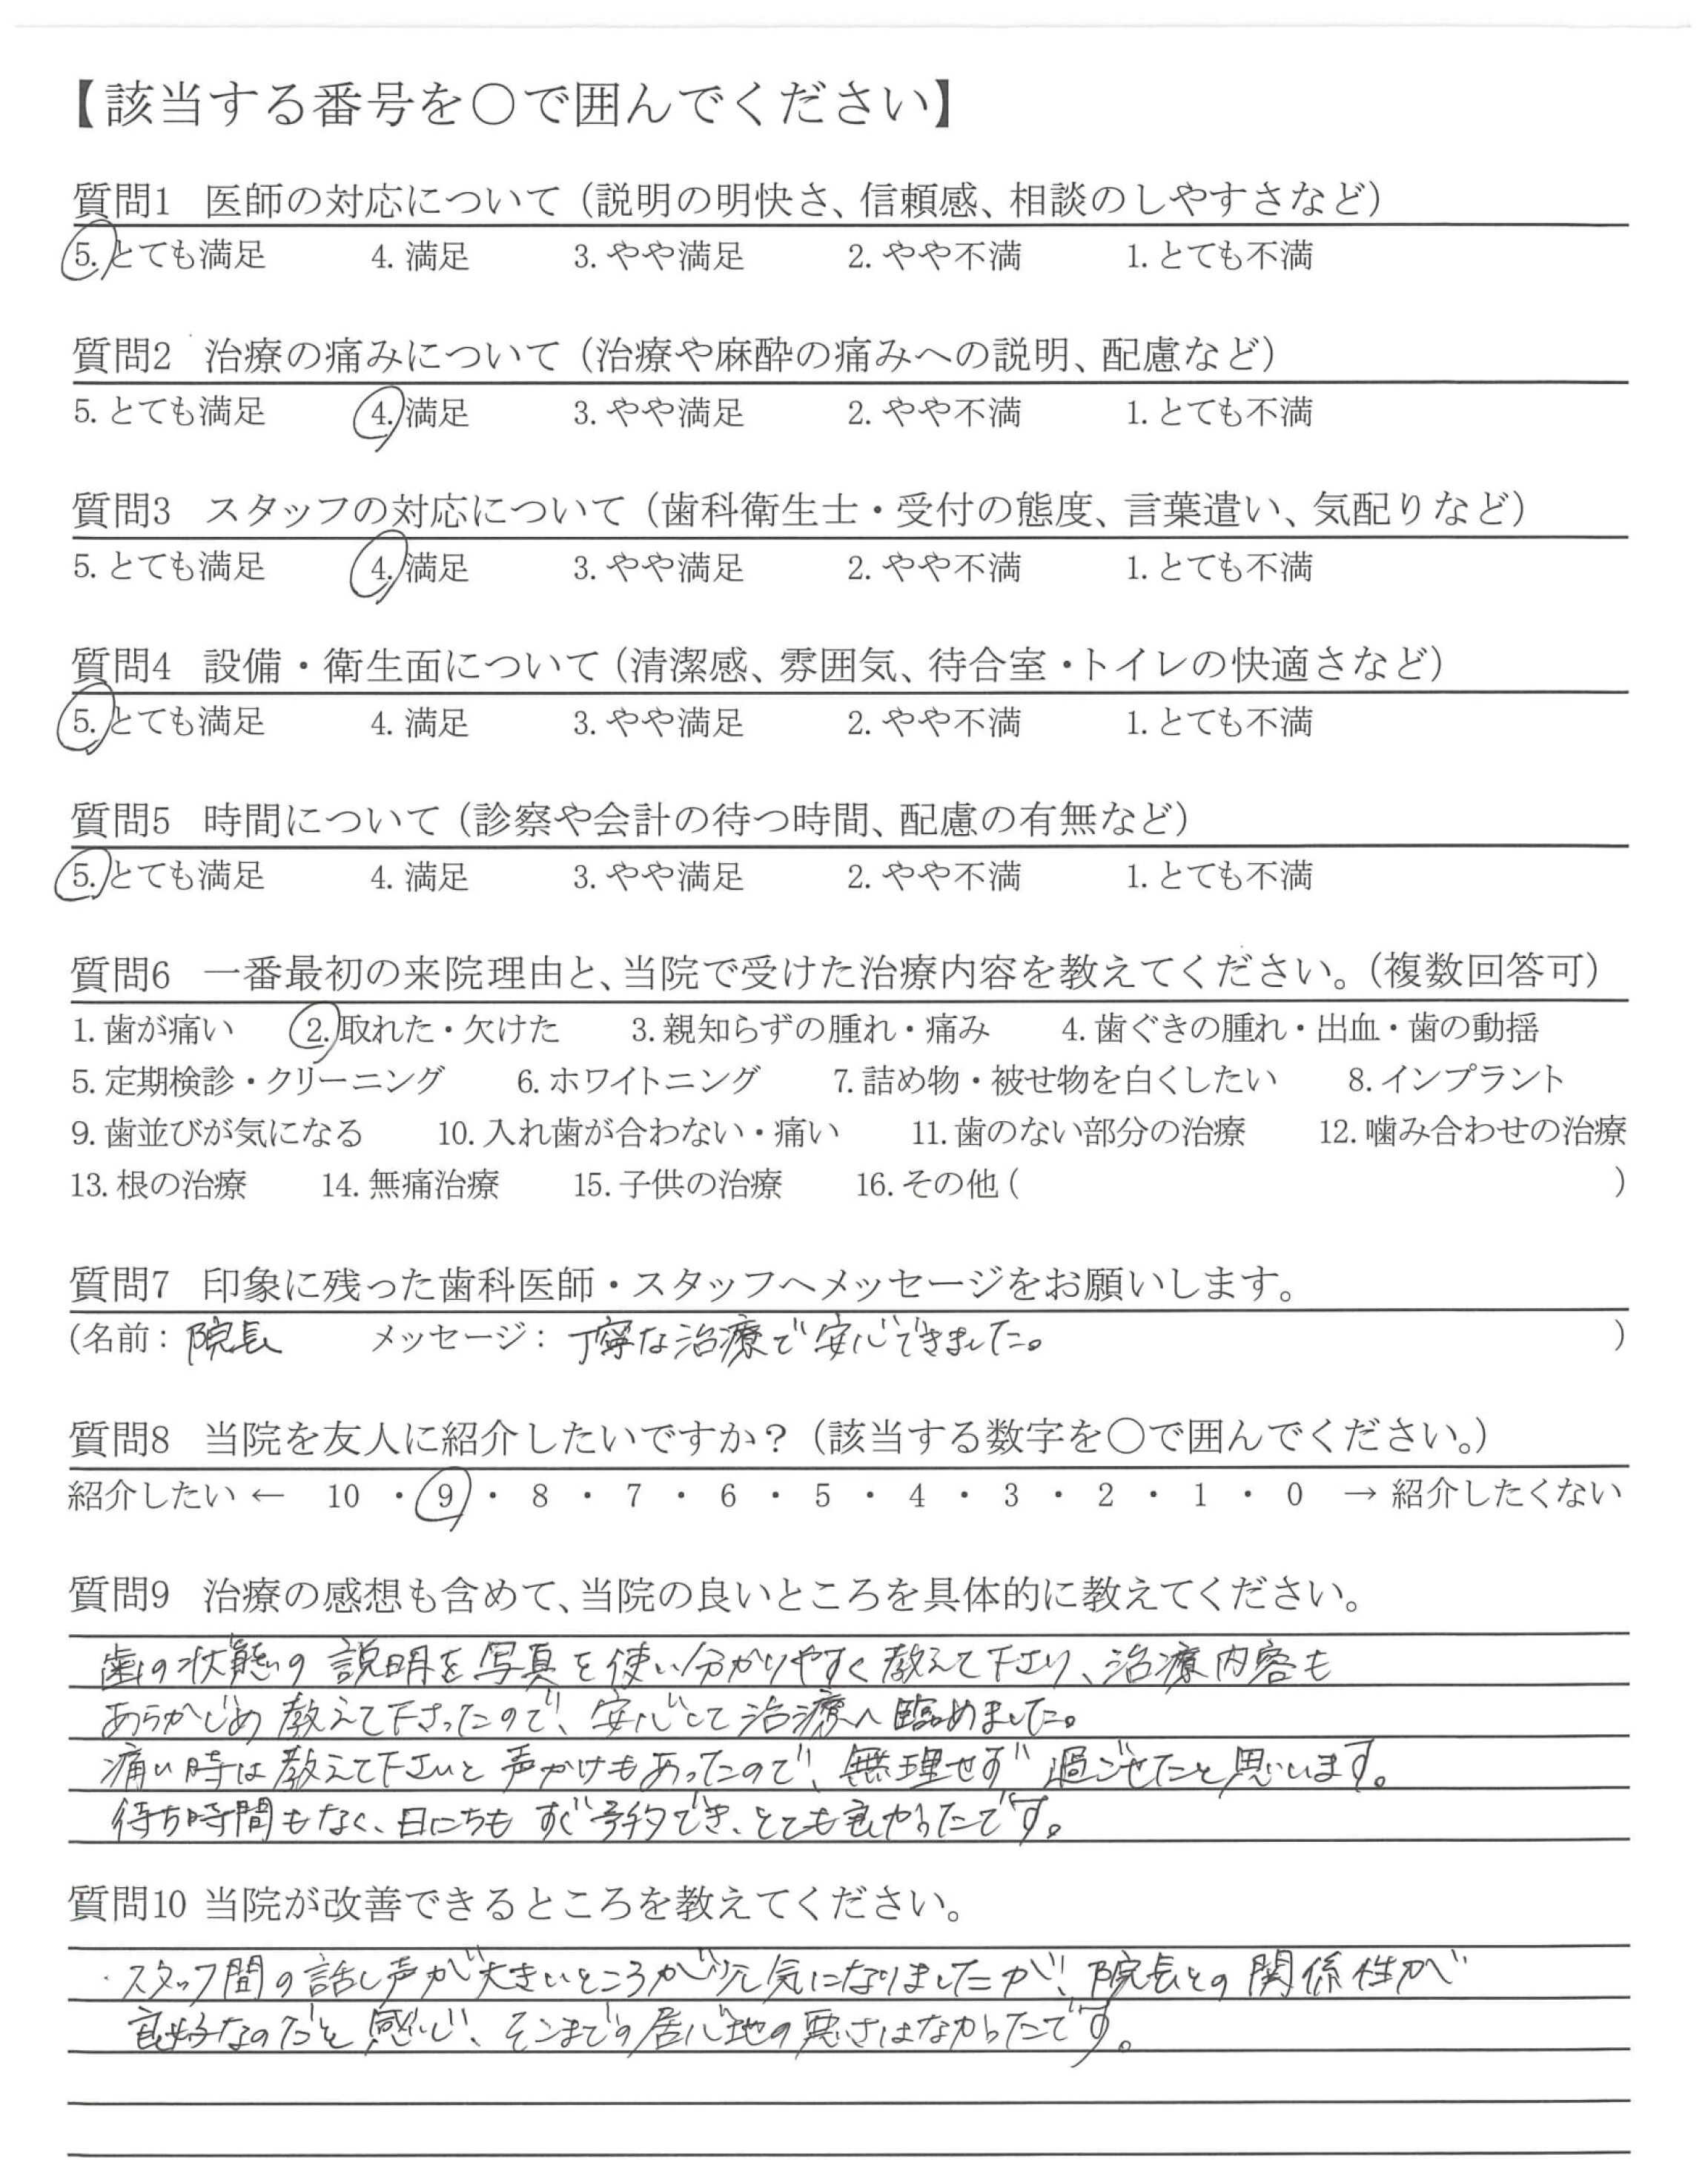 【該当する番号を○で囲んでください】
質問1 医師の対応について（説明の明快さ、信頼感、相談のしやすさなど）
5. とても満足 4. 満足 3. やや満足 2. やや不満 1. とても不満
質問2 治療の痛みについて（治療や麻酔の痛みへの説明、配慮など）
5. とても満足 4. 満足 3. やや満足 2. やや不満 1. とても不満
質問3 スタッフの対応について（歯科衛生士・受付の態度、言葉遣い、気配りなど）
5. とても満足 4. 満足 3. やや満足 2. やや不満 1. とても不満
質問4 設備・衛生面について（清潔感、雰囲気、待合室・トイレの快適さなど）
5. とても満足 4. 満足 3. やや満足 2. やや不満 1. とても不満
質問5 時間について（診察や会計の待つ時間、配慮の有無など）
5. とても満足 4. 満足 3. やや満足 2. やや不満 1. とても不満
質問6 一番最初の来院理由と、当院で受けた治療内容を教えてください。（複数回答可）
1. 歯が痛い 2. 取れた・欠けた 3. 親知らずの腫れ・痛み 4. 歯ぐきの腫れ・出血・歯の動揺
5. 定期検診・クリーニング 6. ホワイトニング 7. 詰め物・被せ物を白くしたい 8. インプラント
9. 歯並びが気になる 10. 入れ歯が合わない・痛い 11. 歯のない部分の治療 12. 噛み合わせの治療
13. 根の治療 14. 無痛治療 15. 子供の治療 16. その他 ( )
質問7 印象に残った歯科医師・スタッフへメッセージをお願いします。
(名前： 院長 メッセージ： 丁寧な治療で安心できました。 )
質問8 当院を友人に紹介したいですか？（該当する数字を○で囲んでください。）
紹介したい ← 10 ・ 9 ・ 8 ・ 7 ・ 6 ・ 5 ・ 4 ・ 3 ・ 2 ・ 1 ・ 0 → 紹介したくない
質問9 治療の感想も含めて、当院の良いところを具体的に教えてください。
歯の状態の説明を写真を使い分かりやすく教えて下さり、治療内容も
あらかじめ教えて下さったので、安心して治療へ臨めました。
痛い時は教えて下さいと声かけもあったので、無理せず過ごせたと思います。
待ち時間もなく、日にちもすぐ予約でき、とても良かったです。
質問10 当院が改善できるところを教えてください。
・スタッフ間の話し声が大きいところが少し気になりましたが、院長との関係性が
良好なのだと感じ、そこまでの居心地の悪さはなかったです。